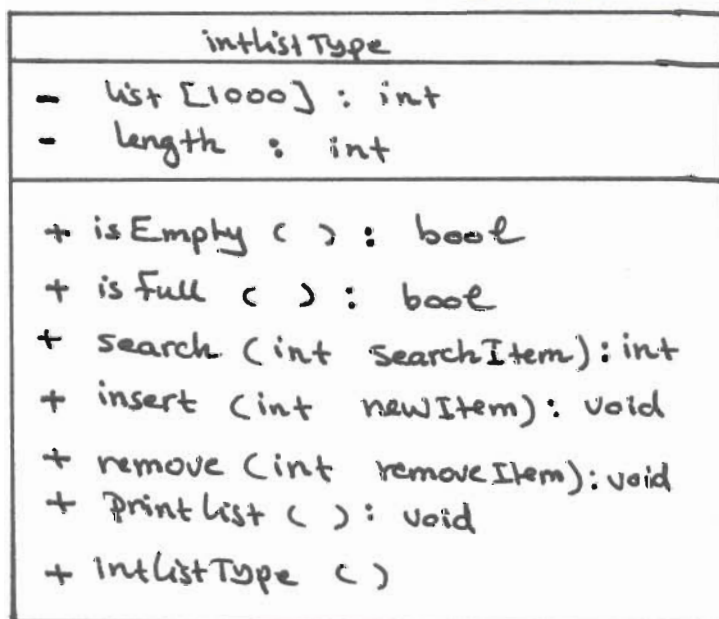 intListType
- list [1000] : int
- length : int
+ isEmpty ( ) : bool
+ isFull ( ) : bool
+ search (int searchItem) : int
+ insert (int newItem) : void
+ remove (int removeItem) : void
+ printList ( ) : void
+ intListType ( )